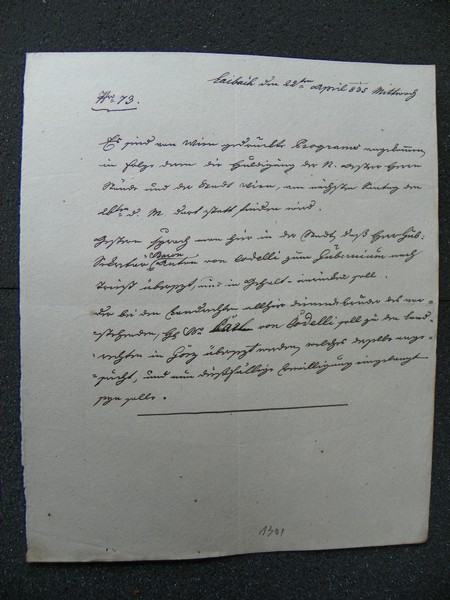 Laibach den 22ten April 835 Mittwoch
No 73.
Es sind von Wien gedruckte Programe angekommen,
in Folge deren die Huldigung der N. Oester Herrn
Stände und der Stadt Wien, am nächsten Sontag den
26ten d. M. dort statt finden wird.
Gestern sprach man hier in der Stadt, daß Herr Gub:
Sekretär Baron Anton von Codelli zum Gubernium nach
Triest übersetzt, und in Gehalt soll.
Die bei den Landrechten allhier dienende Bruder des vor-
stehenden, H Br Karl von Codelli soll zu den Land-
rechten in Görz übersetzt werden, welches derselbe ange-
sucht, und nun dießfällige Bewilligung eingelangt
seyn solle.
1301